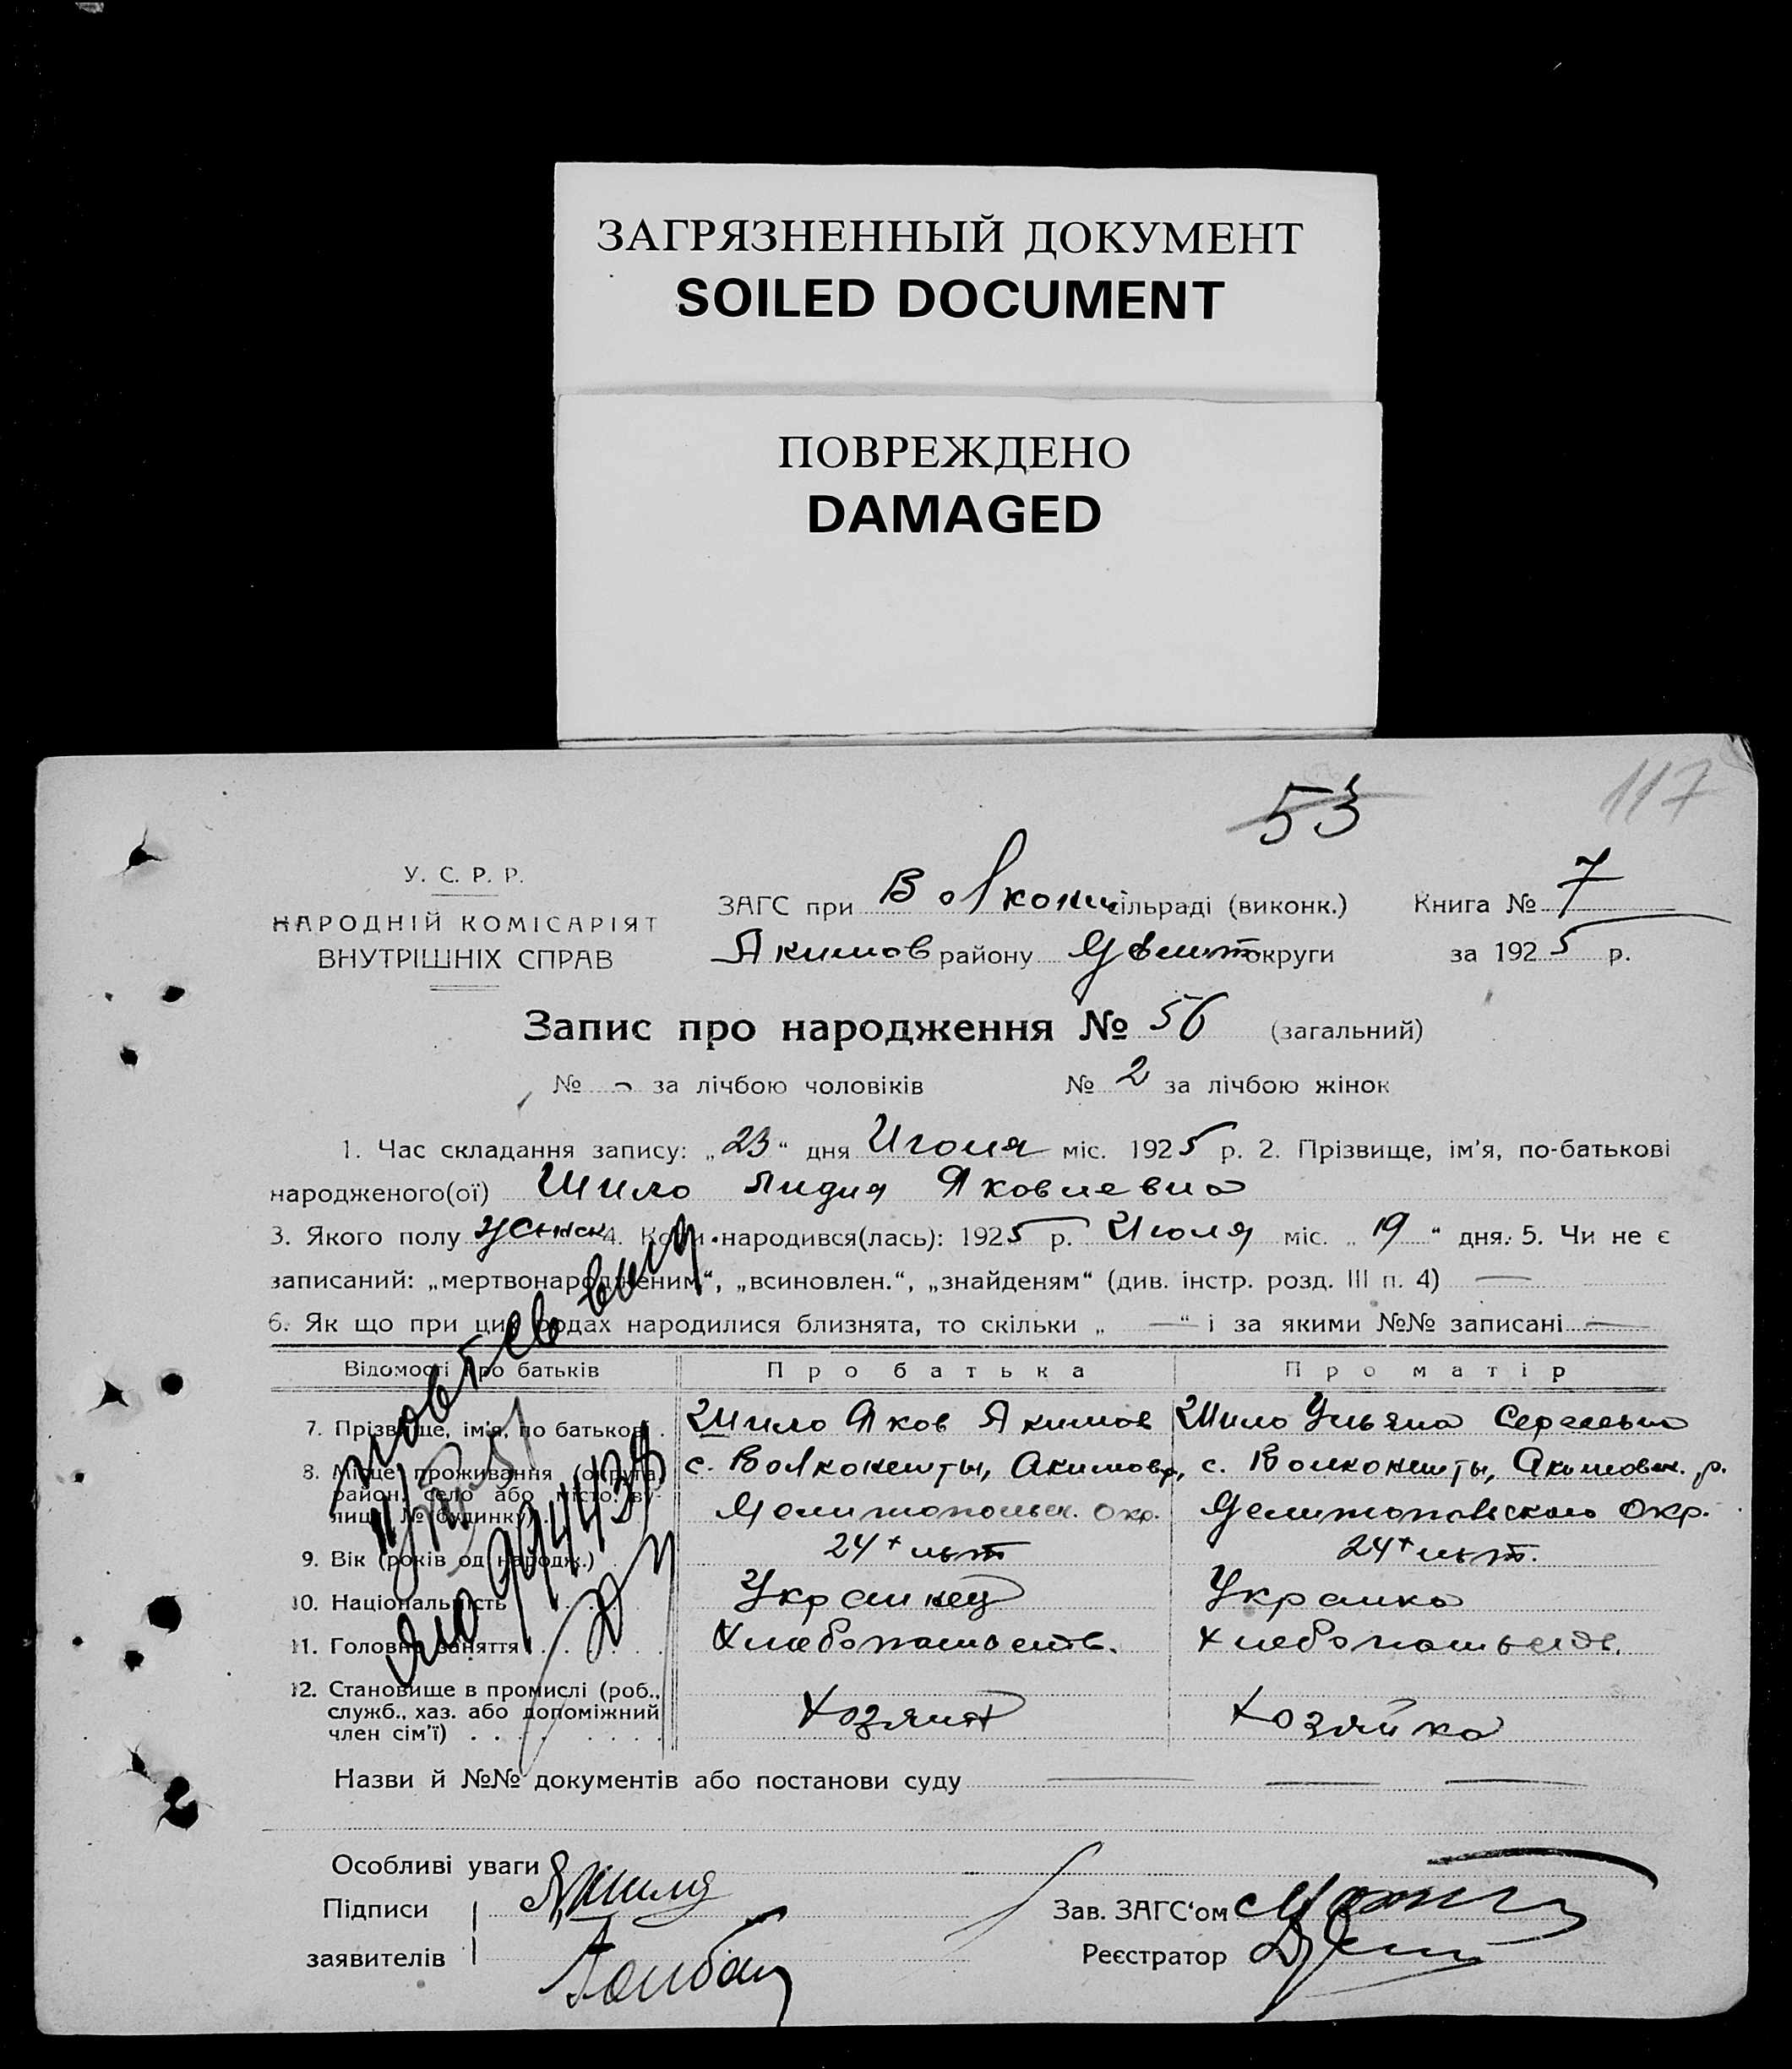 ЗАГРЯЗНЕННЫЙ ДОКУМЕНТ
SOILED DOCUMENT
ПОВРЕЖДЕНО
DAMAGED
53
117
У. С. Р. Р.
НАРОДНІЙ КОМІСАРІЯТ
ВНУТРІШНІХ СПРАВ
ЗАГС при Волкон сільраді (виконк.) Книга № 7
Якимов району округи за 1925 р.
Запис про народження № 56 (загальний)
№ - за лічбою чоловіків № 2 за лічбою жінок
1. Час складання запису: „23“ дня Июля міс. 1925 р. 2. Прізвище, ім'я, по-батькові
народженого(ої) Шило Лидия Яковлевна
3. Якого полу женск 4. Коли народився(лась): 1925 р. Июля міс. „19“ дня. 5. Чи не є
записаний: „мертвонародженим“, „всиновлен.“, „знайденям“ (див. інстр. розд. III п. 4) —
6. Як що при цих родах народилися близнята, то скільки „—“ і за якими №№ записані —
Відомості про батьків Про батька Про матір
7. Прізвище, ім'я, по батькові . Шило Яков Якимов Шило Ульяна Сергеевна
8. Місце проживання (округа, с. Волконешты, Акимовр, с. Волконешты, Акимовск. р.
район, село або місто, ву-
лиця, № будинку) Мелитопольск. Окр. Мелитопольского Окр.
9. Вік (років од народж.) 24 лет 24 лет.
10. Національність Украинец Украинка
11. Головне заняття Хлебопашеств. Хлебопашеств.
12. Становище в промислі (роб.,
служб., хаз. або допоміжний
член сім'ї) Хозяин Хозяйка
Назви й №№ документів або постанови суду — — —
Особливі уваги
Підписи Я Шило Зав. ЗАГС'ом
заявителів Реєстратор